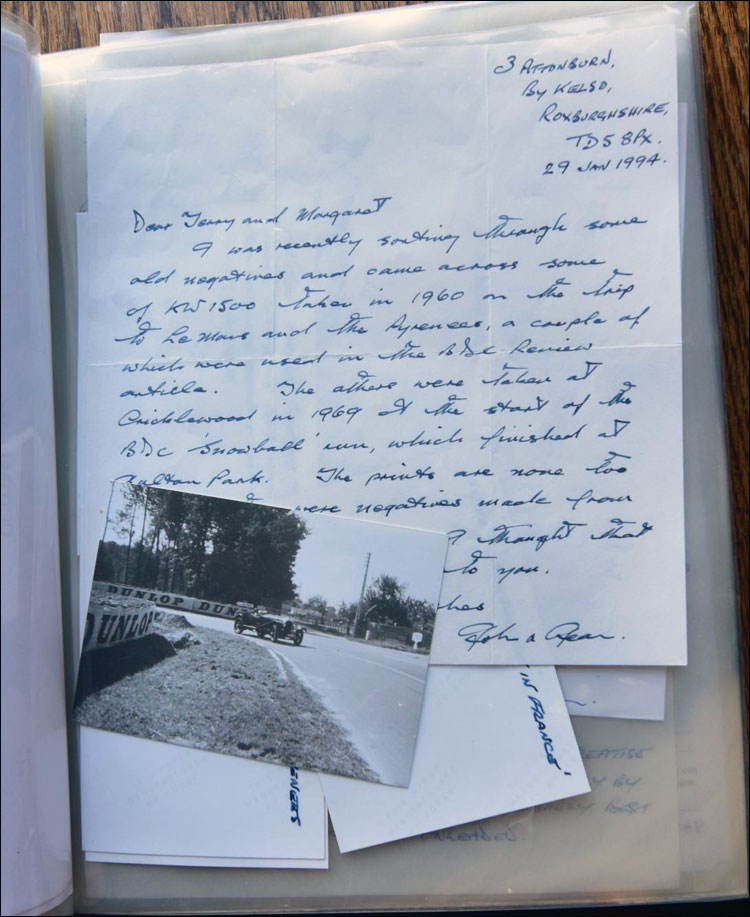 3 ATTONBURN,
BY KELSO,
ROXBURGHSHIRE,
TD5 8PX.
29 JAN 1994.
Dear Terry and Margaret
I was recently sorting through some
old negatives and came across some
of KW1500 taken in 1960 on the trip
to Le Mans and the Pyrenees, a couple of
which were used in the BDC Review
article. The others were taken at
Cricklewood in 1969 at the start of the
BDC 'Snowball' run, which finished at
Oulton Park. The prints are none too
were negatives made from
I thought that
to you.
DUNLOP DUN
DUNLOP
IN FRANCE'
ENEES
BY
BEST